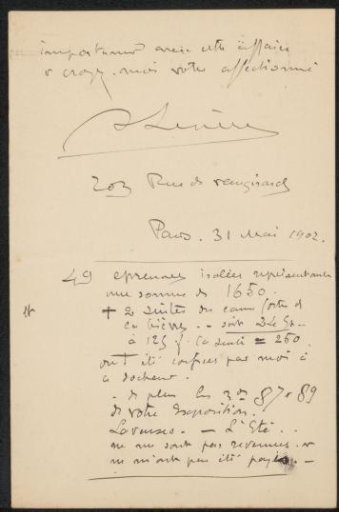 important avec cette affaire
& croyez moi votre affectionné
203 Rue de vaugirard
Paris. 31 Mai 1902.
49 epreuves isolées représentant
une somme de 1650.
+ 2 suites des
à 125 f la suite = 250
ont été confiées par moi à
de plus les 3 87 89
de votre Exposition.
Laveuses. — L'Eté . .
ne me sont pas revenues. &
ne m'ont pas été payées. —